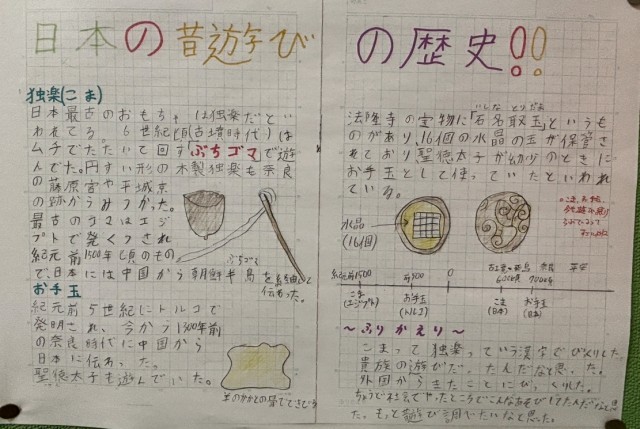 日本の昔遊び
の歴史!!
独楽(こま)
日本最古のおもちゃは独楽だとい
われてる。6世紀頃(古墳時代)は
ムチでたたいて回す「ぶちゴマ」で遊
んでた。円すい形の木製独楽も奈良
の藤原宮や平城京
の跡からみつかった。
最古のコマはエジ
プトで発くつされ
紀元前1500年頃のもの
で、日本には中国から朝鮮半島を経由して
伝わった。
ぶちごま
お手玉
紀元前5世紀にトルコで
発明され、今から1300年前
の奈良時代に中国から
日本に伝わった。
聖徳太子も遊んでいた。
羊のかかとの骨でできてる
いしな とりだま
法隆寺の宝物に「石名取玉」というも
のがあり、16個の水晶の玉が保管さ
れており聖徳太子が幼少のときに
お手玉として使っていたといわれ
ている。
水晶
(16個)
紀元前1500
前500
0
古墳〜飛鳥
600年
奈良
700年
平安
こま
(エジプト)
お手玉
(トルコ)
こま
(日本)
お手玉
(日本)
〜ふりかえり〜
こまって独楽っていう漢字でびっくりした。
貴族の遊びだったんだなと思った。
外国からきたことにびっくりした。
ちょうど社会でやったところでこんなあそびしてたんだなと思っ
た。もっと昔遊び調べたいなと思った。